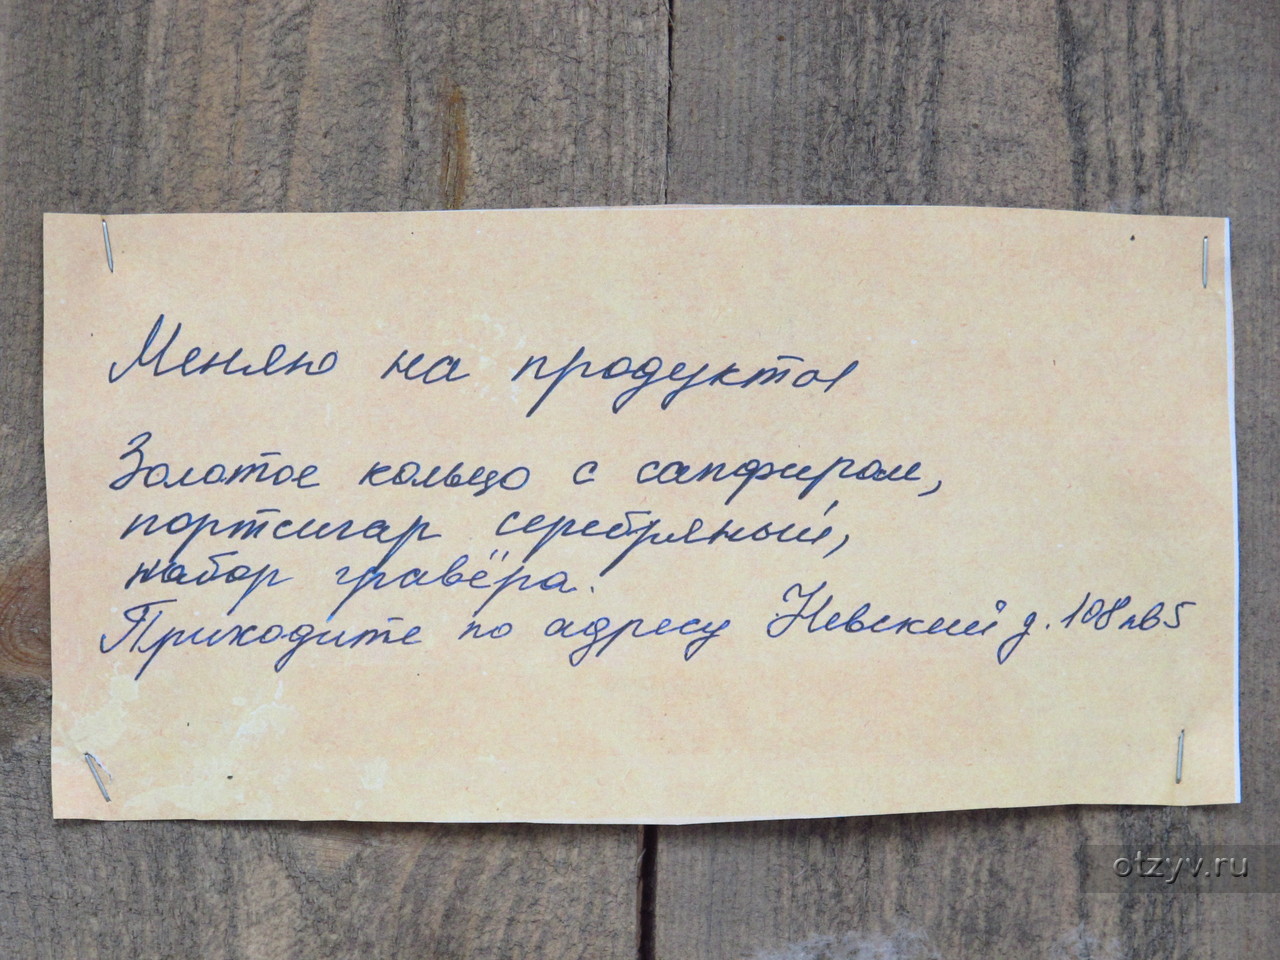 Меняю на продукты
Золотое кольцо с сапфиром,
портсигар серебряный,
набор гравёра.
Приходите по адресу Невский д. 108 кв 5
otzyv.ru